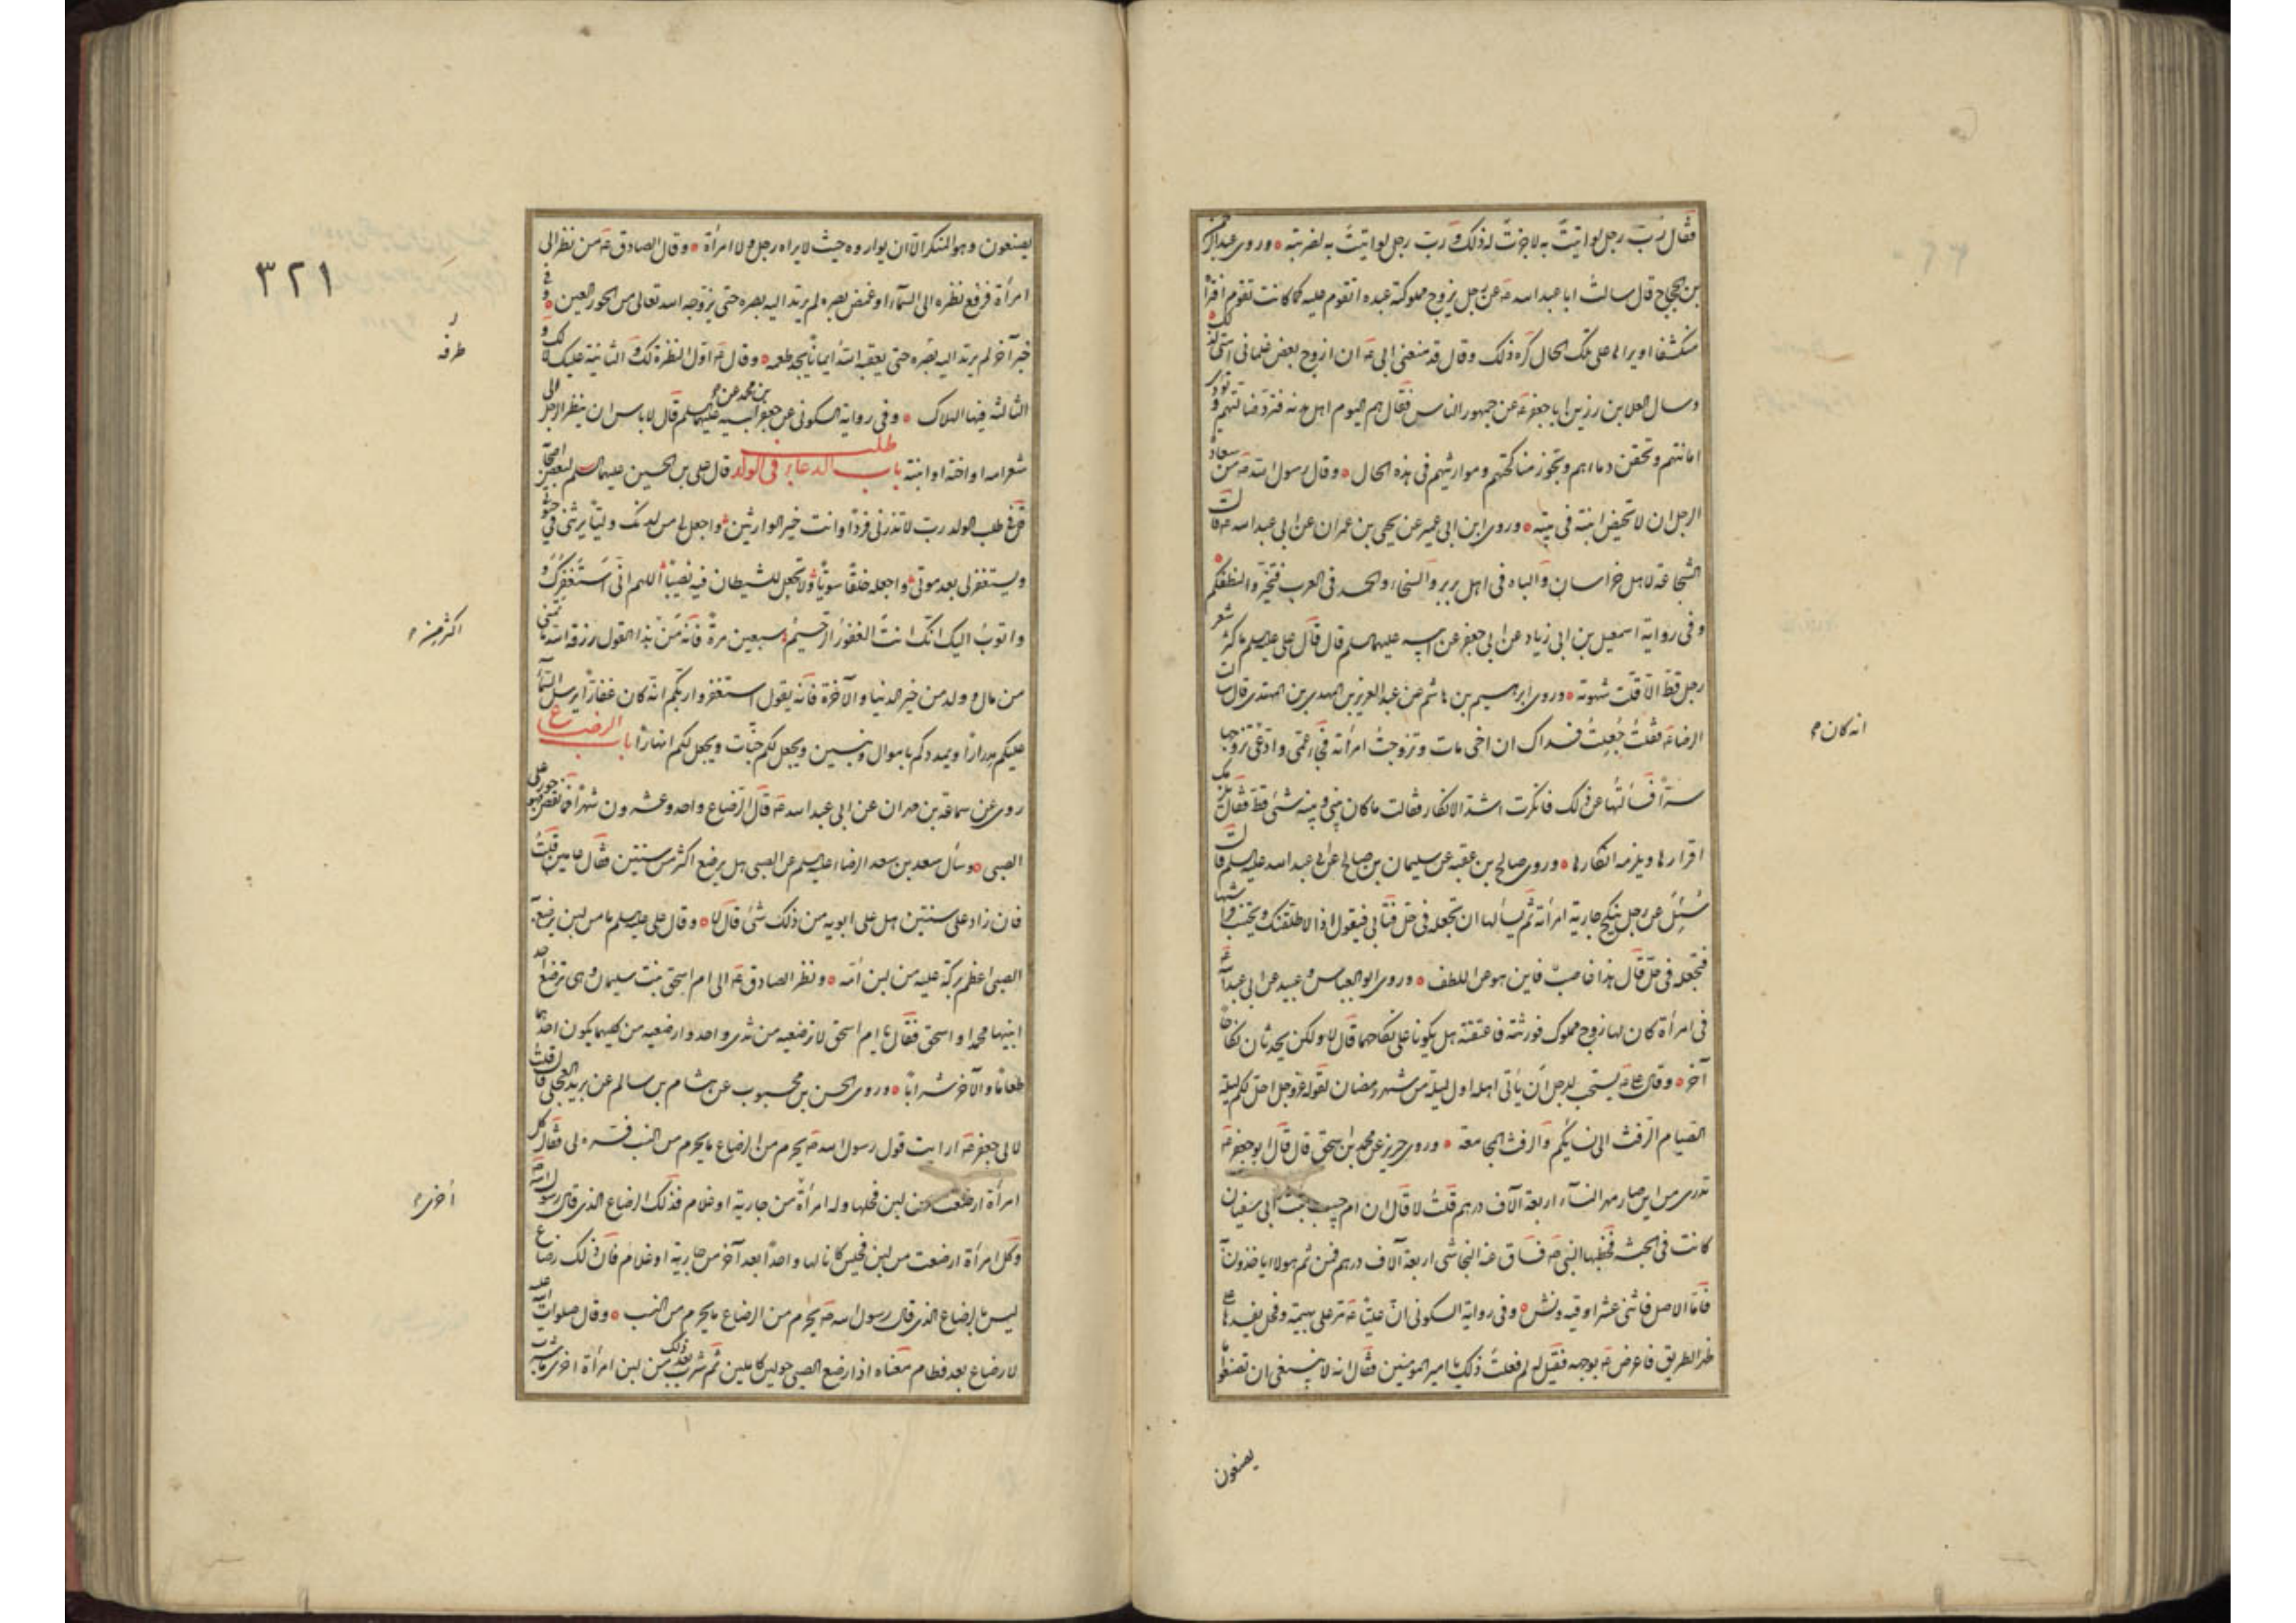 فقال رب رجل لو اتيت به لاجزت له ذلك و رب رجل لو اتيت به لضربته وروى عبد الرحمن
بن الحجاج قال سالت ابا عبد الله ع عن رجل يزوج مملوكته عبده اتقوم عليه كما كانت تقوم فتراه
منكشفا او يراها على تلك الحال فكره ذلك وقال قد منعنى ابى ع ان ازوج بعض غلمانى امتى لذلك
وسال العلا بن رزين ابا جعفر ع عن جمهور الناس فقال هم اليوم اهل هدنه فترد ضالتهم وتؤدى
امانتهم وتحقن دماءهم وتجوز مناكحتهم وموارثتهم فى هذه الحال وقال رسول الله ص من سعادة
الرجل ان لا تحيض ابنته فى بيته وروى ابن ابى عمير عن يحيى بن عمران عن ابى عبد الله ع قال
الشجاعة لاهل خراسان والباه فى اهل بربر والسخاء والحسد فى العرب فتخيروا لنطفكم
وفى رواية اسمعيل بن ابى زياد عن ابى جعفر عن ابيه عليهما السلم قال قال على عليه السلم ما كثر شعر
رجل قط الا قلت شهوته وروى ابرهيم بن هاشم عن عبد العزيز بن المهدى بن المهتدى قال سالت
الرضا ع فقلت جعلت فداك ان اخى مات وتزوجت امرأته فجاء عمى وادعى انه كان تزوجها
سرا فسألتها عن ذلك فانكرت اشد الانكار وقالت ما كان بينى وبينه شئ قط فقال يلزمك
اقرارها ويلزمه انكارها وروى صالح بن عقبه عن سليمان بن صالح عن ابى عبد الله عليه السلم قال
سئل عن رجل ينكح جارية امرأته ثم يسألها ان تجعله فى حل فتابى فيقول اذا لاطلقنك ويجتنب فراشها
فتجعله فى حل قال هذا غاصب فاين هو من اللطف وروى ابو العباس وعبيد عن ابى عبد الله ع
فى امرأة كان لها زوج مملوك فورثته فاعتقته هل يكونا على نكاحهما قال لا ولكن يجددان نكاحا
آخر وقال على ع يستحب للرجل ان يأتى اهله اول ليلة من شهر رمضان لقوله عز وجل احل لكم ليلة
الصيام الرفث الى نسائكم والرفث المجامعة وروى حريز عن محمد بن اسحق قال قال ابو جعفر ع
تدرى من اين صار مهر النساء اربعة آلاف درهم قلت لا قال ان ام حبيب بنت ابى سفيان
كانت فى الحبشه فخطبها النبى ص فساق عنه النجاشى اربعة آلاف درهم فمن ثم هولاء ياخذون به
فاما الاصل فاثنى عشر اوقيه ونش وفى رواية السكونى ان عليا ع مر على بهيمة وفحل يفسدها على
ظهر الطريق فاعرض ع بوجهه فقيل له لم فعلت ذلك يا امير المؤمنين فقال انه لا ينبغى ان تصنعوا ما
يصنعون
انه كان
٣٢١
يصنعون وهو المنكر الا ان يواروه حيث لا يراه رجل ولا امرأة وقال الصادق ع من نظر الى
امرأة فرفع نظره الى السماء او غمض بصره لم يرتد اليه بصره حتى يزوجه الله تعالى من الحور العين وفى
خبر آخر لم يرتد اليه بصره حتى يعقبه الله ايمانا يجد طعمه وقال ع اول النظرة لك والثانية عليك و
الثالثه فيها الهلاك وفى رواية السكونى عن جعفر بن محمد عن ابيه عليهما السلم قال لا باس ان ينظر الرجل الى
شعر امه او اخته او ابنته باب الدعاء فى طلب الولد قال على بن الحسين عليهما السلم لبعض اصحابه
قل فى طلب الولد رب لا تذرنى فردا وانت خير الوارثين واجعل لى من لدنك وليا يرثنى فى حيوتى
ويستغفر لى بعد موتى واجعله خلقا سويا ولا تجعل للشيطان فيه نصيبا اللهم انى استغفرك
واتوب اليك انك انت الغفور الرحيم سبعين مرة فانه من هذا القول رزقه الله ما تمنى
من مال وولد من خير الدنيا والآخرة فانه يقول استغفروا ربكم انه كان غفارا يرسل السماء
عليكم مدرارا ويمددكم باموال وبنين ويجعل لكم جنات ويجعل لكم انهارا باب الرضاع
روى عن سماعة بن مهران عن ابى عبد الله ع قال الرضاع واحد وعشرون شهرا فما نقص فهو جور على
الصبى وسأل سعد بن سعد الرضا عليه السلم عن الصبى هل يرضع اكثر من سنتين فقال عامين قلت
فان زاد على سنتين هل على ابويه من ذلك شئ قال لا وقال على عليه السلم ما من لبن يرضع به
الصبى اعظم بركة عليه من لبن امه ونظر الصادق ع الى ام اسحق بنت سليمان وهى ترضع احد
ابنيها محمدا او اسحق فقال يا ام اسحق لا ترضعيه من ثدى واحد وارضعيه من كليهما يكون احدهما
طعاما والآخر شرابا وروى الحسن بن محبوب عن هشام بن سالم عن بريد العجلى قال قلت
لابى جعفر ع ارايت قول رسول الله ص يحرم من الرضاع ما يحرم من النسب فسره لى فقال كل
امرأة ارضعت من لبن فحلها ولد امرأة من جارية او غلام فذلك الرضاع الذى قال رسول الله ص
وكل امرأة ارضعت من لبن فحلين كانا لها واحدا بعد آخر من جارية او غلام فان ذلك رضاع
ليس بالرضاع الذى قال رسول الله ص يحرم من الرضاع ما يحرم من النسب وقال صلوات الله عليه
لا رضاع بعد فطام معناه اذا ارضع الصبى حولين كاملين ثم شرب بعد ذلك من لبن امرأة اخرى ما شرب
طرفه
اكثر من
أخرى